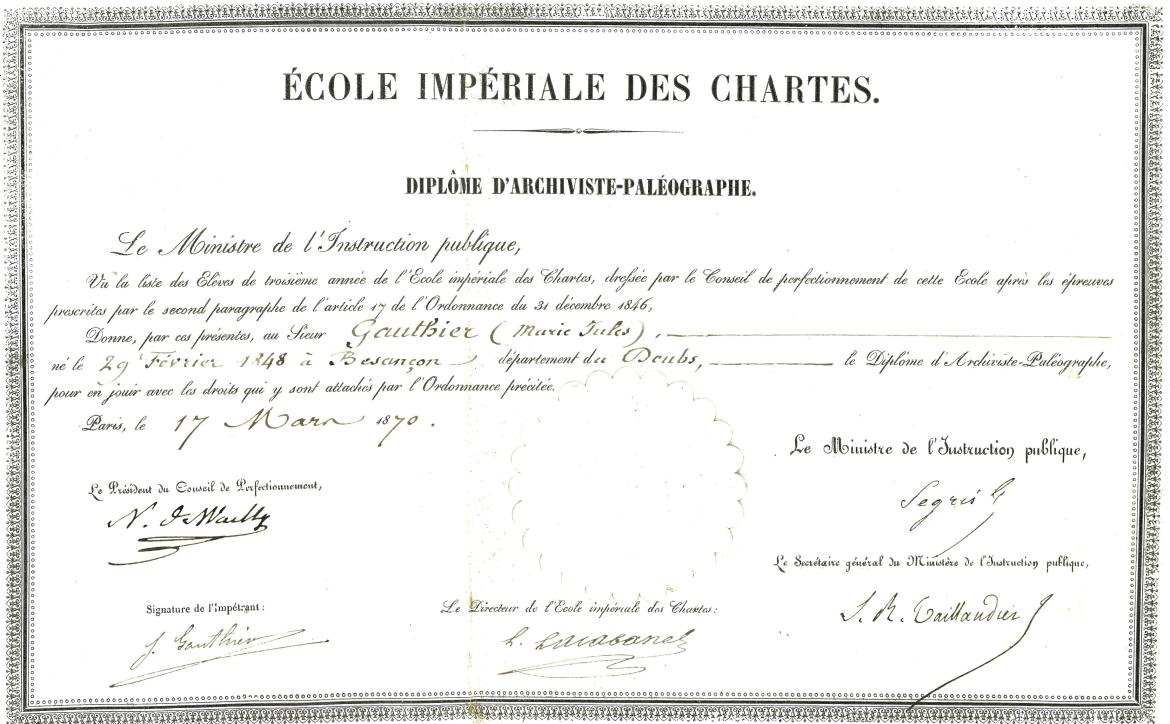 ÉCOLE IMPÉRIALE DES CHARTES.
DIPLÔME D'ARCHIVISTE-PALÉOGRAPHE.
Le Ministre de l'Instruction publique,
Vu la liste des Elèves de troisième année de l'Ecole impériale des Chartes, dressée par le Conseil de perfectionnement de cette Ecole après les épreuves
prescrites par le second paragraphe de l'article 17 de l'Ordonnance du 31 décembre 1846,
Donne, par ces présentes, au Sieur Gauthier (Marie Jules),
né le 29 Février 1848 à Besançon, département du Doubs, le Diplôme d'Archiviste-Paléographe,
pour en jouir avec les droits qui y sont attachés par l'Ordonnance précitée.
Paris, le 17 Mars 1870.
Le Ministre de l'Instruction publique,
Segris
Le Président du Conseil de Perfectionnement,
N. de Wailly
Le Secrétaire général du Ministère de l'Instruction publique,
S. R. Taillandier
Signature de l'impétrant:
J. Gauthier
Le Directeur de l'Ecole impériale des Chartes:
L. Lacabane